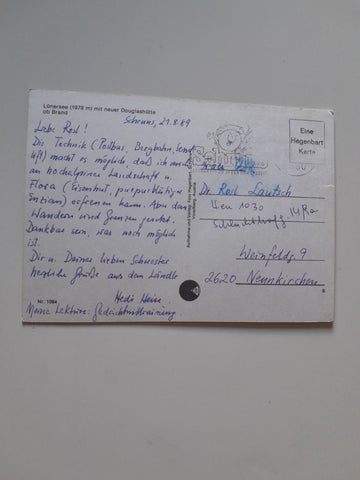 Lünersee (1979 m) mit neuer Douglashütte
ob Brand
Schruns, 29.8.89
Liebe Rosl!
Die Technik (Postbus, Bergbahn, Sessel-
lift) macht es möglich, daß ich mich
an hochalpiner Landschaft u.
Flora (Eisenhut, purpurblütiger
Enzian) erfreuen kann. Aber das
Wandern wird
Dankbar sein, was noch möglich
ist.
Dir u. Deiner lieben Schwester
herzliche Grüße aus dem Ländle
Hedi
Nr. 1094
Meine Lektüre: Gedächtnistraining
Eine
Hegenbart
Karte
Dr. Rosl Lautsch
Wien 1030
Weinfeldg. 9
2620 Neunkirchen